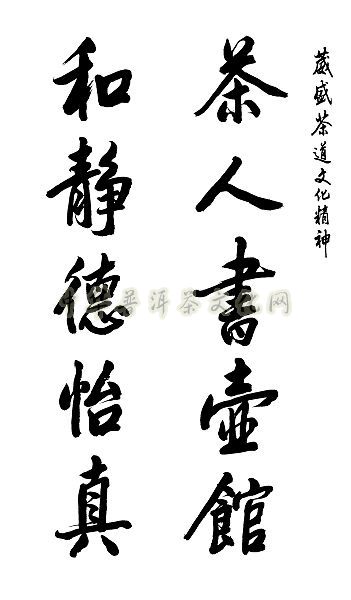 葳盛茶道文化精神
茶人書壺館
和靜德怡真
中国普洱茶文化网